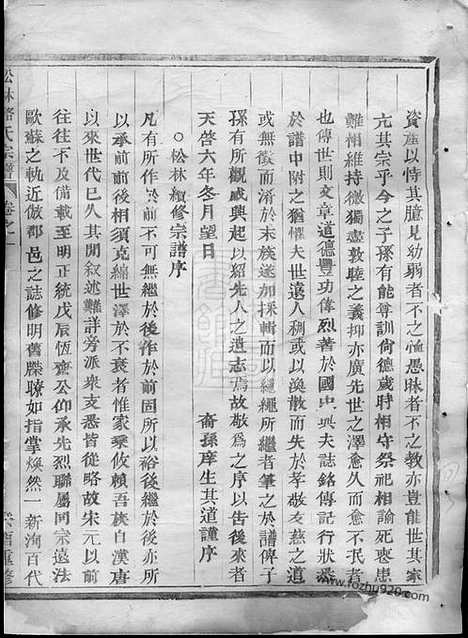 資產以恃其臆見幼弱者不之恤愚昧者不之教亦豈能世其家
亢其宗乎今之子孫有能尊訓尚德歲時相守祭祀相諭死喪患
難相維持微獨盡敦睦之義抑亦廣先世之澤愈久而愈不冺者
也傳世則文章道德豐功偉烈著於國史與夫誌銘傳記行狀悉
於譜中附之猶懼夫世遠人稠或以渙散而失於孝敬友慈之道
或無徵而淆於末族遂加採輯而以繩繩所繼者筆之於譜俾子
孫有所觀感興起以紹先人之遺志焉故敬為之序以告後來者
天啓六年冬月望日
裔孫庠生其道謹序
○松林續修宗譜序
凡有所作於前者不可無繼於後作於前固所以裕後繼於後亦所
以承前前後相須克綿世澤於不替者惟家乘攸賴吾族自漢唐
以來世代巳久其間叙述難詳旁派衆支悉皆從略故宋元以前
往往不及備載至明正統戊辰恆齋公仰承先烈聯屬同宗遠法
歐蘇之軌近倣郡邑之誌修明舊牒暸如指掌煥然一新洵百代
松林 氏宗譜
卷之一
癸酉重修
www.fozhu920.com